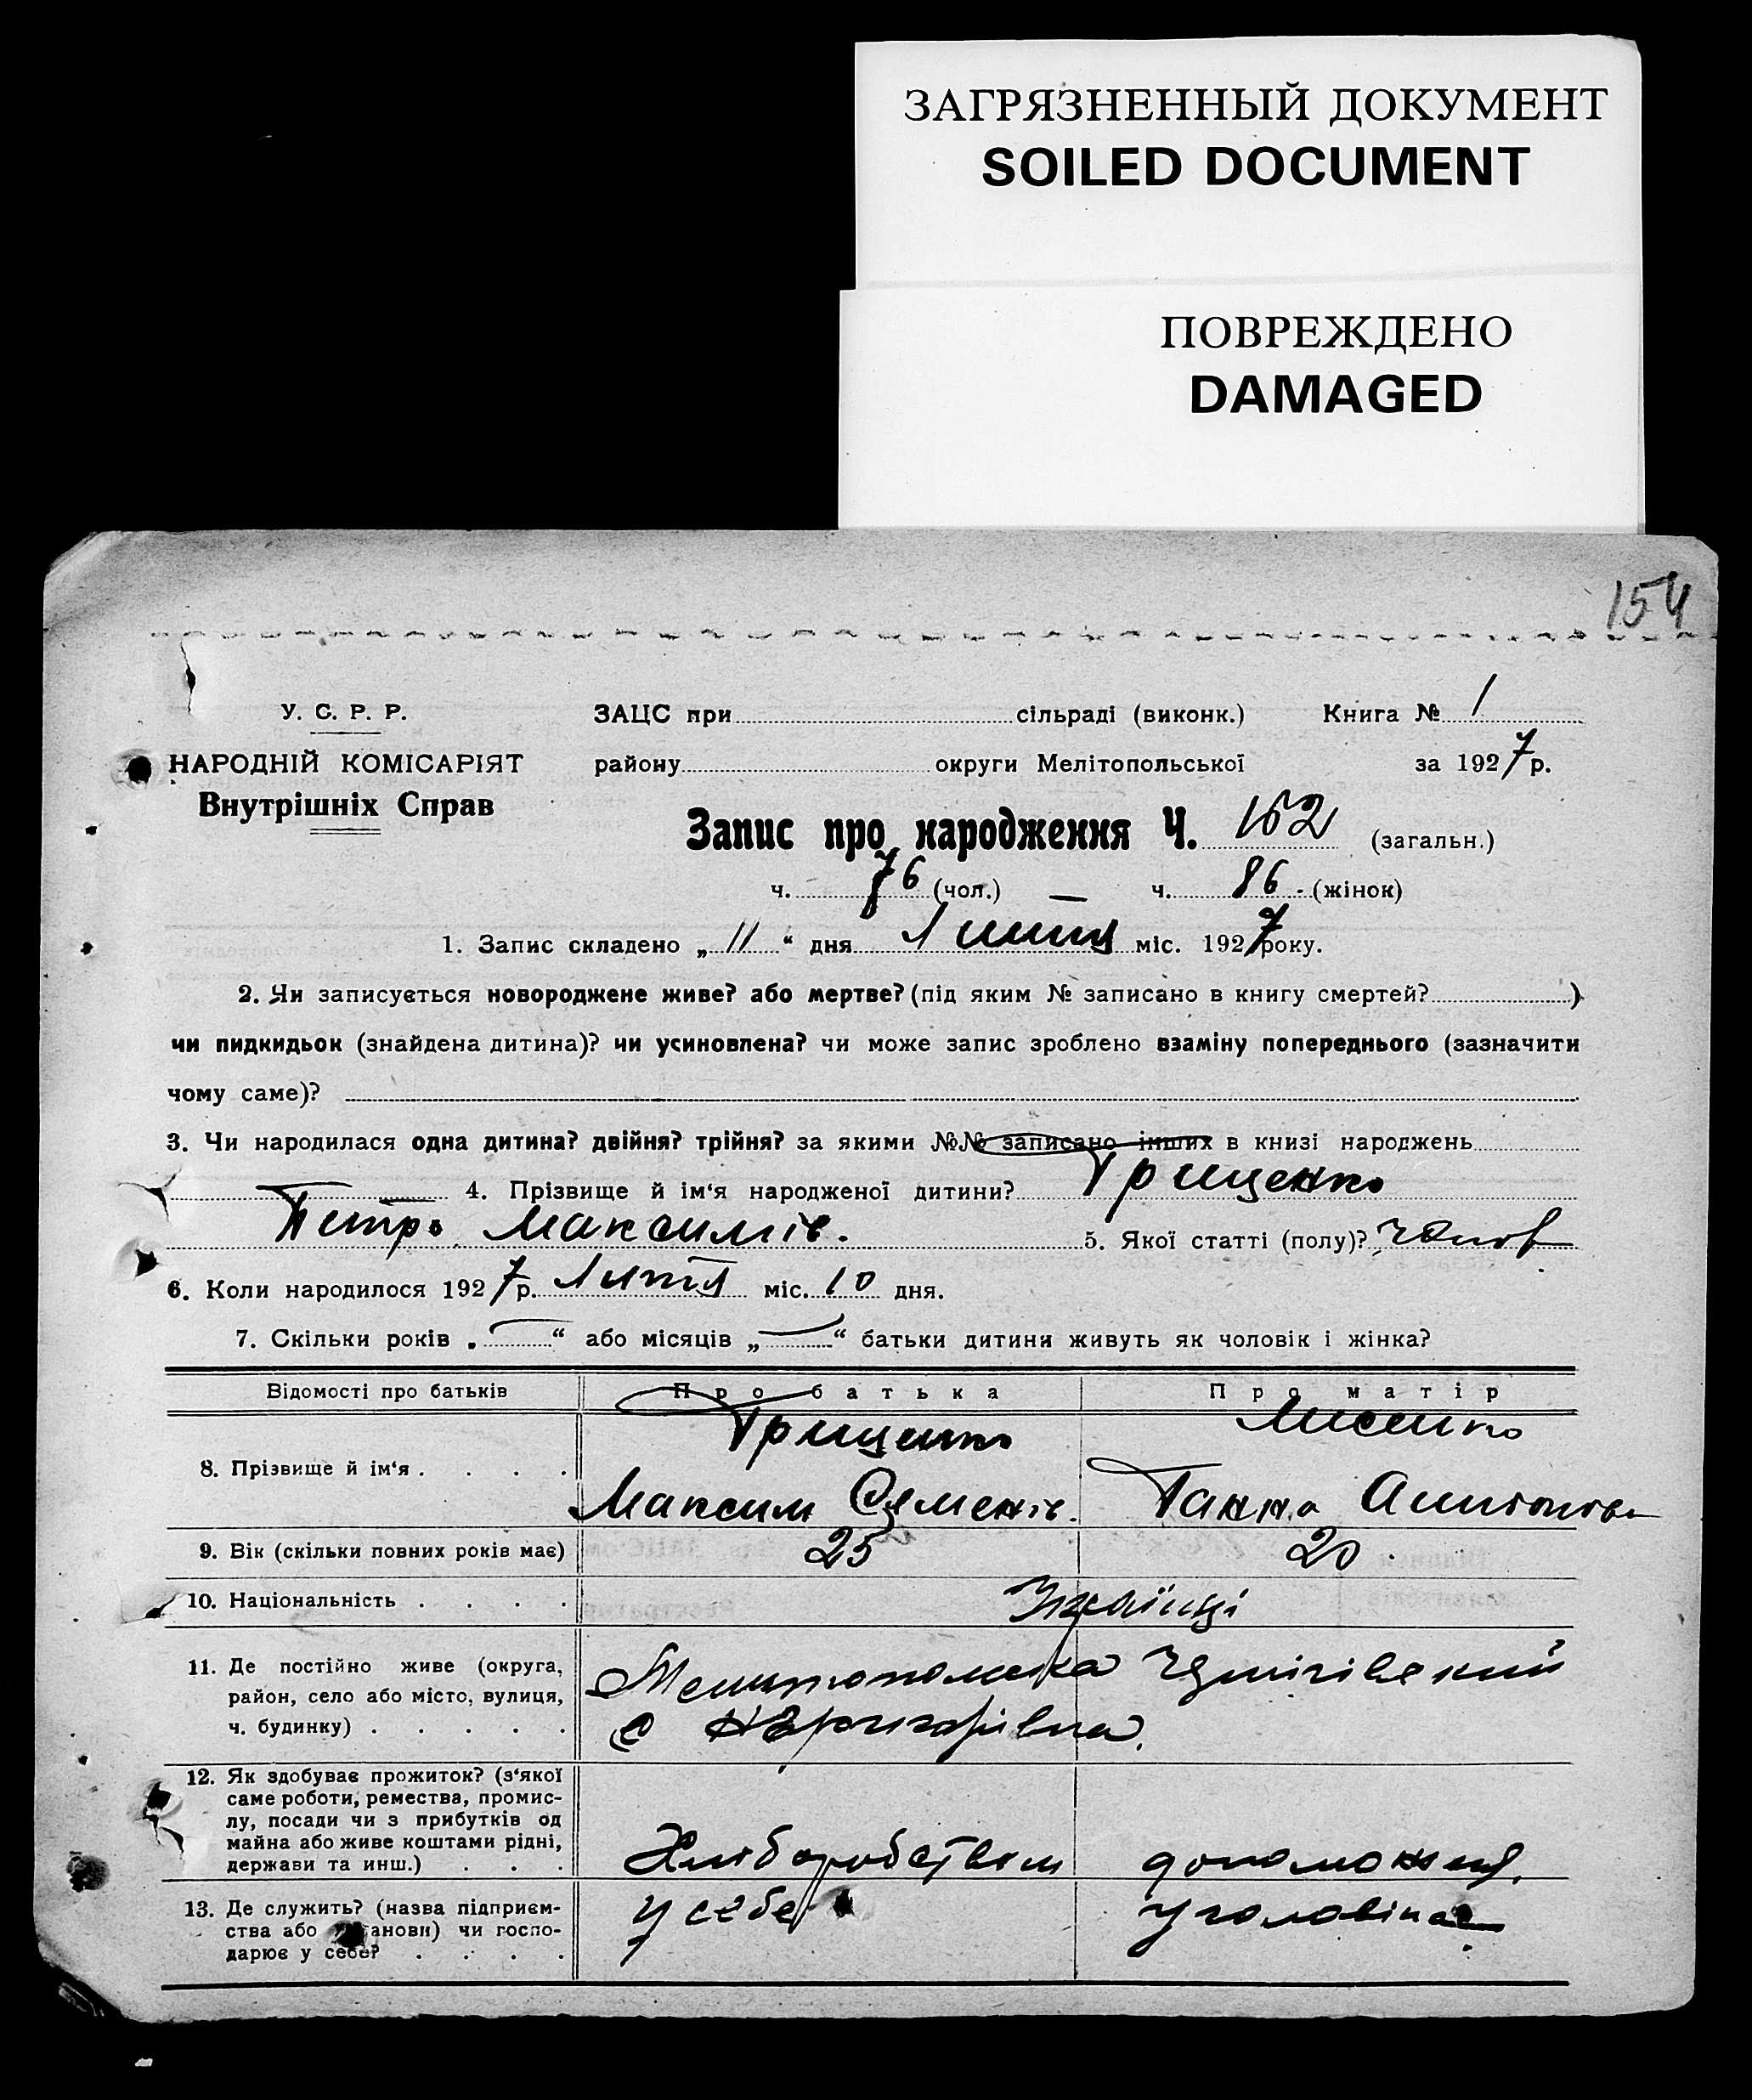 ЗАГРЯЗНЕННЫЙ ДОКУМЕНТ
SOILED DOCUMENT
ПОВРЕЖДЕНО
DAMAGED
154
У. С. Р. Р.
НАРОДНІЙ КОМІСАРІЯТ
Внутрішніх Справ
ЗАЦС при сільраді (виконк.) Книга № 1
району округи Мелітопольської за 1927 р.
Запис про народження Ч. 162 (загальн.)
ч. 76 (чол.) — ч. 86 (жінок)
1. Запис складено „11“ дня Липня міс. 1927 року.
2. Чи записується новороджене живе? або мертве? (під яким № записано в книгу смертей? )
чи пидкидьок (знайдена дитина)? чи усиновлена? чи може запис зроблено взаміну попереднього (зазначити
чому саме)?
3. Чи народилася одна дитина? двійня? трійня? за якими №№ записано інших в книзі народжень
4. Прізвище й ім‘я народженої дитини? Грищенко
Петро Максимів. 5. Якої статті (полу)? чолов
6. Коли народилося 1927 р. Липня міс. 10 дня.
7. Скільки років „ “ або місяців „ “ батьки дитини живуть як чоловік і жінка?
Відомості про батьків Про батька Про матір
8. Прізвище й ім‘я . . . . Грищенко Лисенко
Максим Семенів. Ганна
9. Вік (скільки повних років має) 25 20
10. Національність . . . . Українці
11. Де постійно живе (округа,
район, село або місто, вулиця,
ч. будинку) . . . . .
Мелитопольська Чернігівский
с
12. Як здобуває прожиток? (з‘якої
саме роботи, ремества, промис-
лу, посади чи з прибутків од
майна або живе коштами рідні,
держави та инш.) . . .
Хліборобством
13. Де служить? (назва підприєм-
ства або установи) чи госпо-
дарює у себе? . . . .
у себе у чоловіка